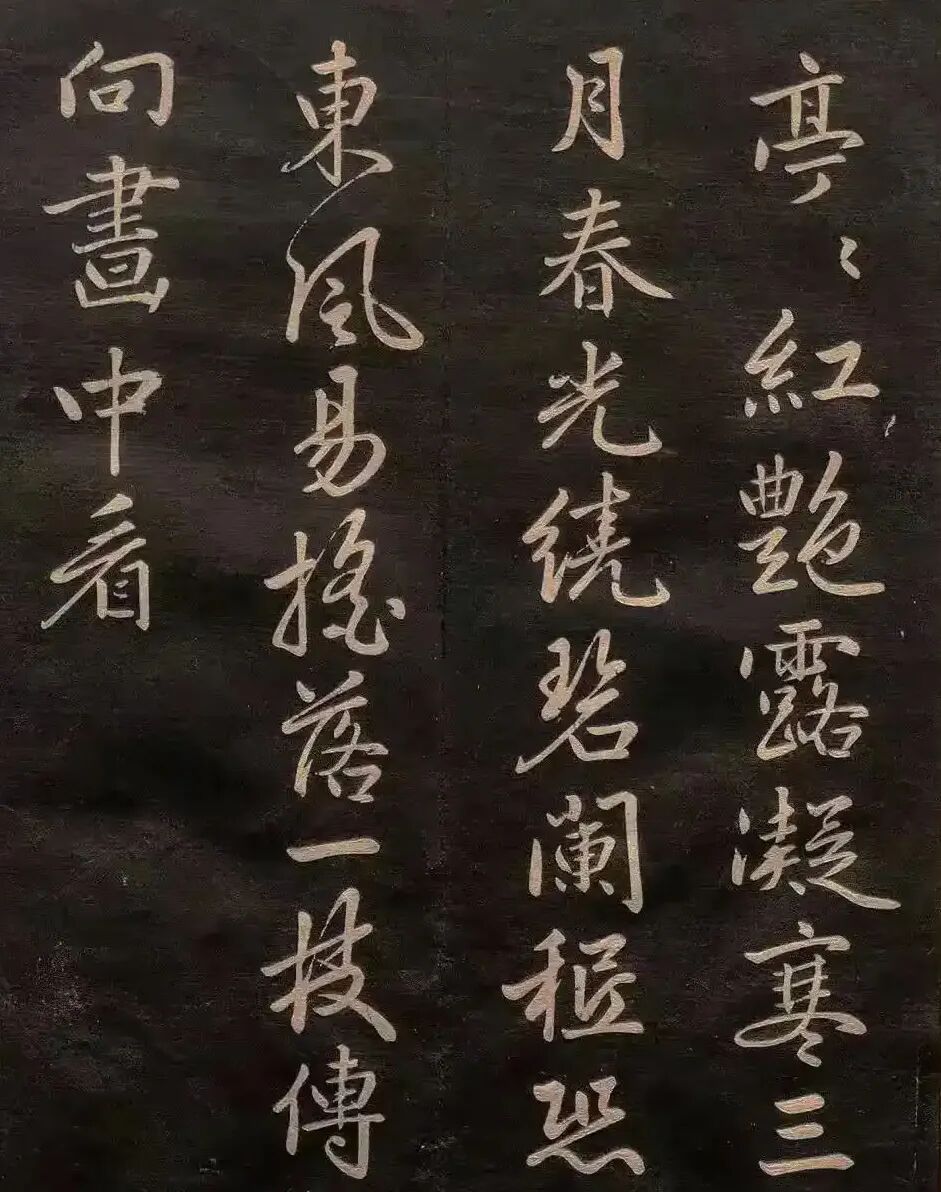 亭〻紅艷露凝寒三
月春光繞碧闌秪恐
東風易搖落一枝傳
向畫中看